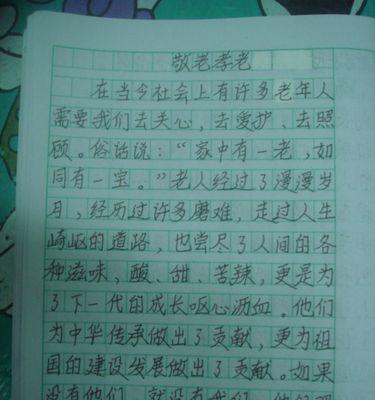 敬老孝老
在当今社会上有许多老年人
需要我们去关心，去爱护、去照
顾。俗话说：“家中有一老，如
同有一宝。”老人经过了漫漫岁
月，经历过许多磨难，走过人生
崎岖的道路，也尝尽了人间的各
种滋味，酸、甜、苦辣，更是为
了下一代的成长呕心沥血。他们
为中华传承做出了贡献，更为祖
国的建设发展做出了贡献。如果
没有他们，就没有我们，他们